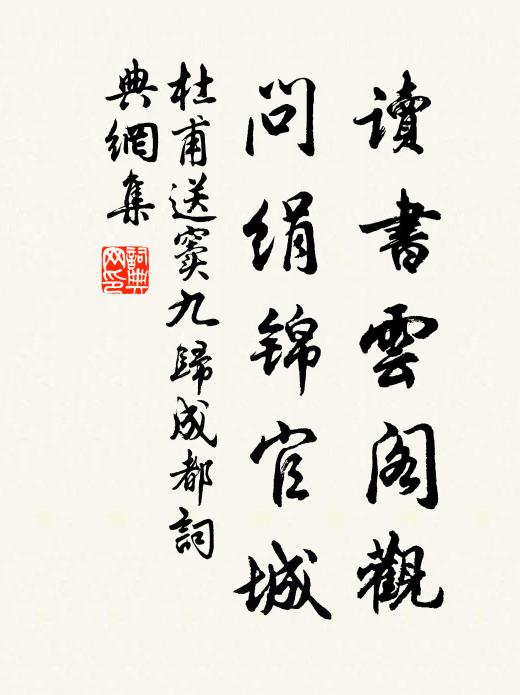 讀書雲閣觀
問絹錦官城
杜甫送竇九歸成都詞
典網集
詞典
网印